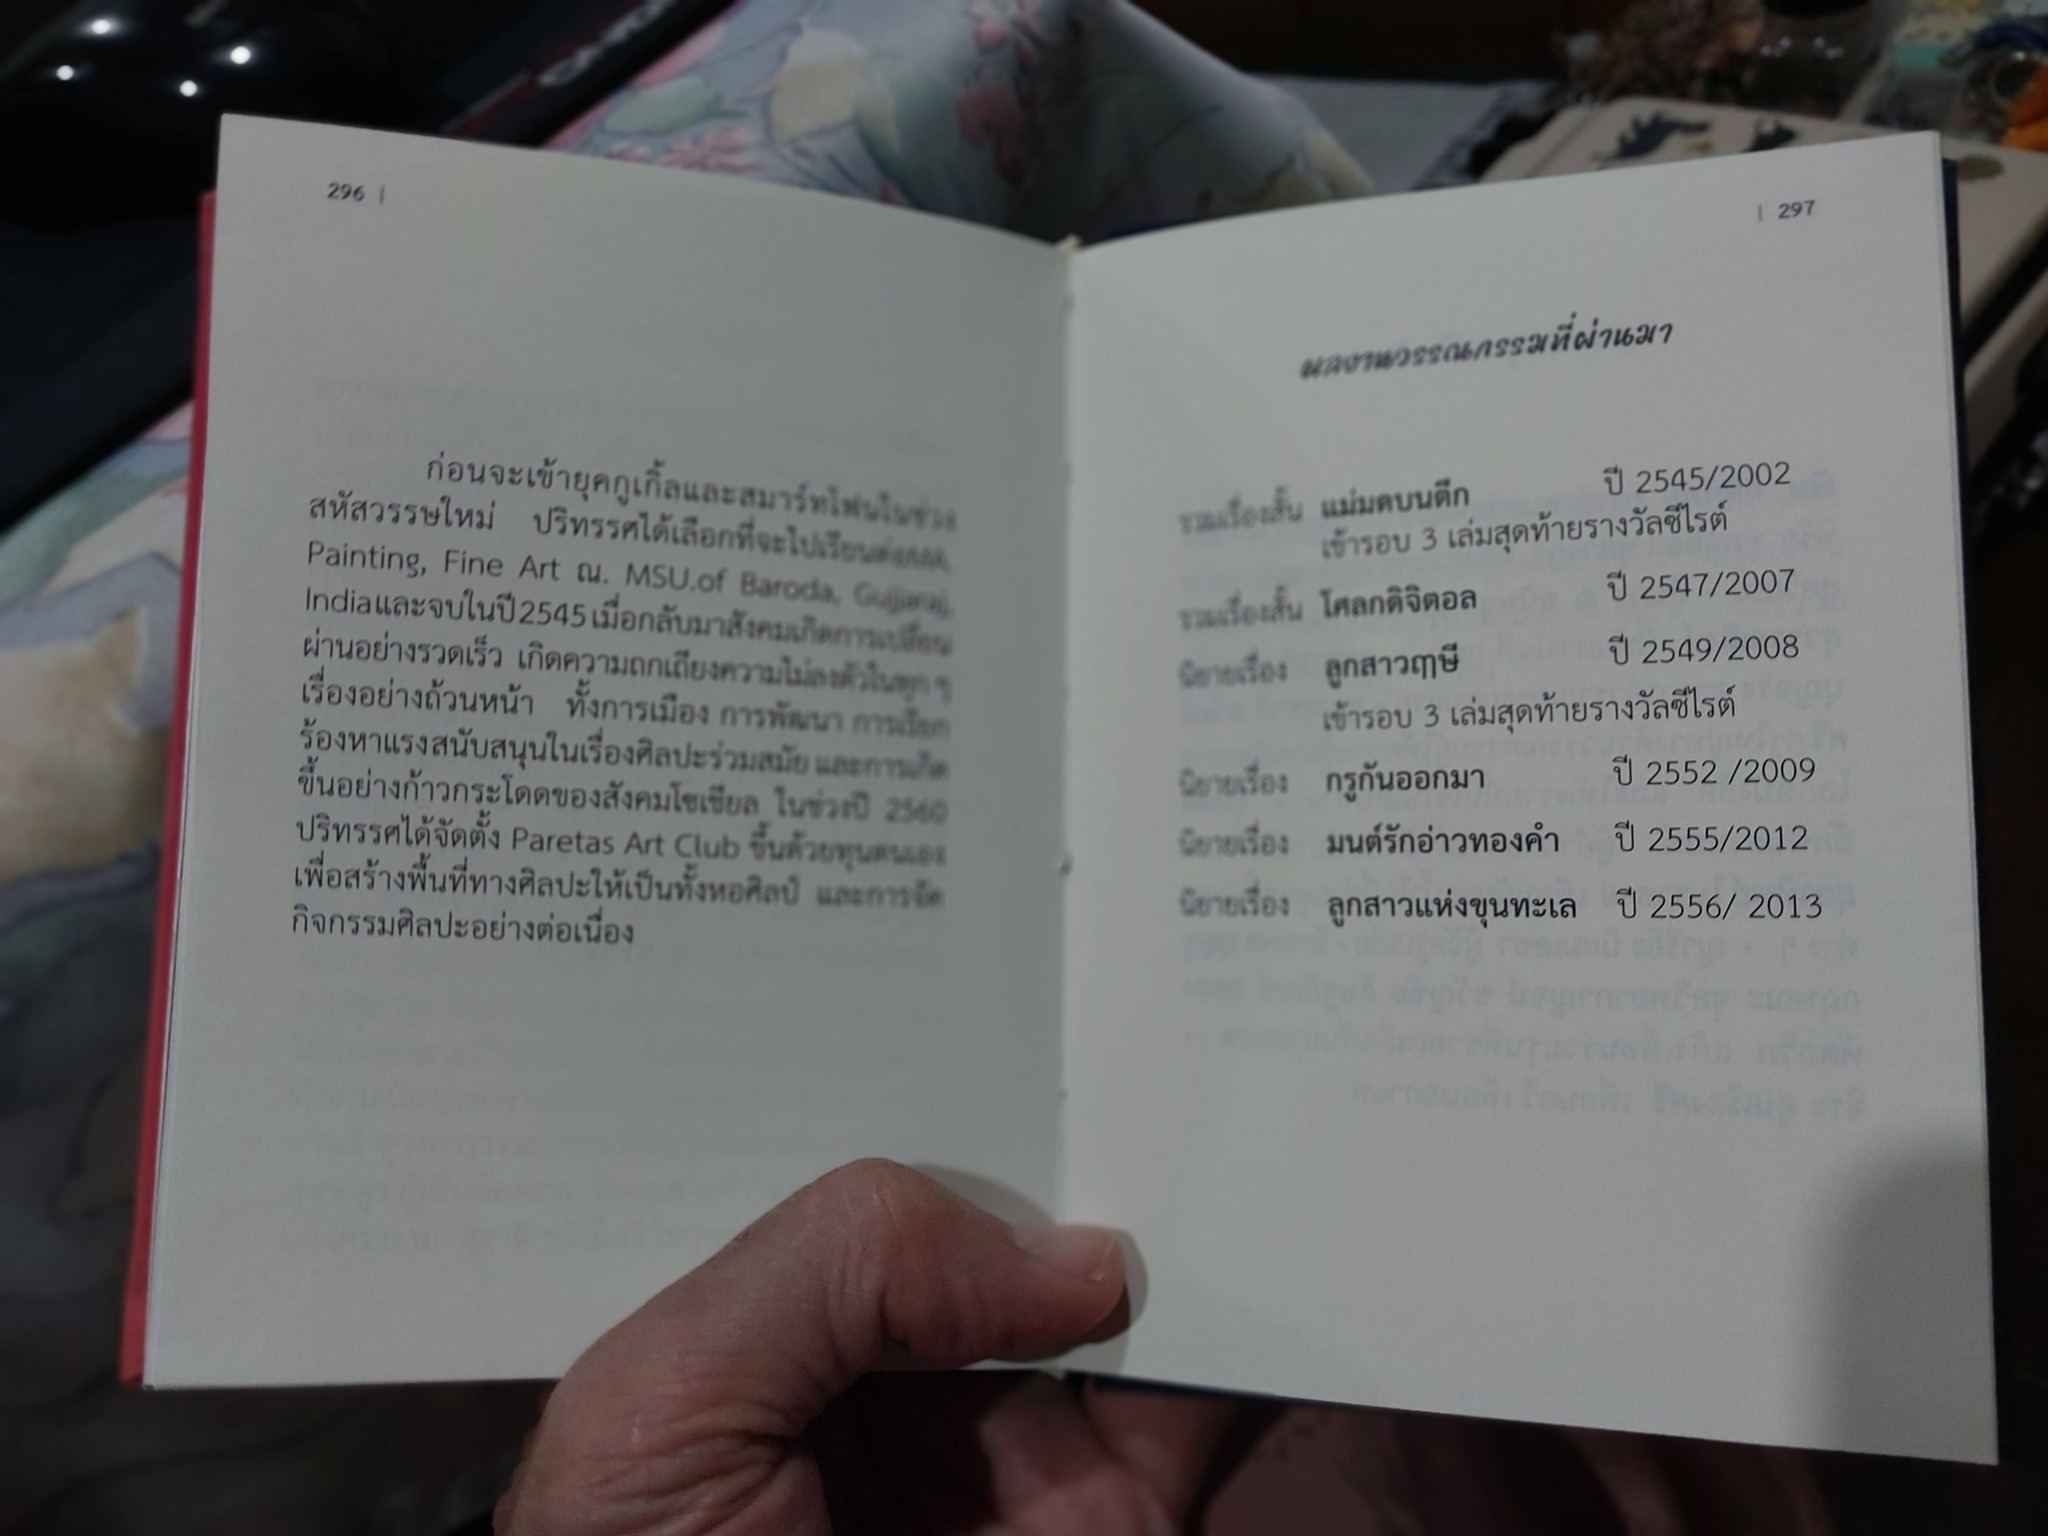 296 |
ก่อนจะเข้ายุคกูเกิ้ลและสมาร์ทโฟนในช่วง
สหัสวรรษใหม่ ปริทรรศได้เลือกที่จะไปเรียนต่อMA.
Painting, Fine Art ณ. MSU.of Baroda, Gujjaraj,
Indiaและจบในปี2545เมื่อกลับมาสังคมเกิดการเปลี่ยน
ผ่านอย่างรวดเร็ว เกิดความถกเถียงความไม่ลงตัวในทุก ๆ
เรื่องอย่างถ้วนหน้า ทั้งการเมือง การพัฒนา การเรียก
ร้องหาแรงสนับสนุนในเรื่องศิลปะร่วมสมัย และการเกิด
ขึ้นอย่างก้าวกระโดดของสังคมโซเชียล ในช่วงปี 2560
ปริทรรศได้จัดตั้ง Paretas Art Club ขึ้นด้วยทุนตนเอง
เพื่อสร้างพื้นที่ทางศิลปะให้เป็นทั้งหอศิลป์ และการจัด
กิจกรรมศิลปะอย่างต่อเนื่อง
| 297
ผลงานวรรณกรรมที่ผ่านมา
รวมเรื่องสั้น แม่มดบนตึก ปี 2545/2002
เข้ารอบ 3 เล่มสุดท้ายรางวัลซีไรต์
รวมเรื่องสั้น โศลกดิจิตอล ปี 2547/2007
นิยายเรื่อง ลูกสาวฤๅษี ปี 2549/2008
เข้ารอบ 3 เล่มสุดท้ายรางวัลซีไรต์
นิยายเรื่อง กรูกันออกมา ปี 2552 /2009
นิยายเรื่อง มนต์รักอ่าวทองคำ ปี 2555/2012
นิยายเรื่อง ลูกสาวแห่งขุนทะเล ปี 2556/ 2013